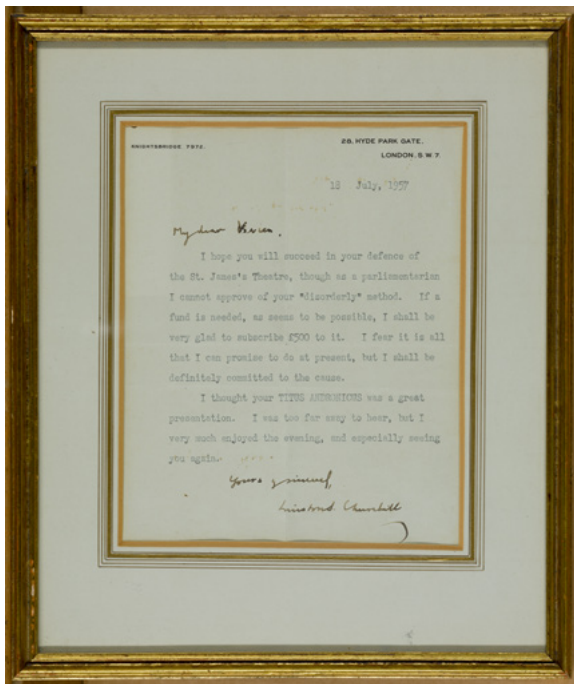 KNIGHTSBRIDGE 7972.
28, HYDE PARK GATE,
LONDON, S.W.7.
18 July, 1957
My dear Vivien,
I hope you will succeed in your defence of
the St. James's Theatre, though as a parliamentarian
I cannot approve of your "disorderly" method. If a
fund is needed, as seems to be possible, I shall be
very glad to subscribe £500 to it. I fear it is all
that I can promise to do at present, but I shall be
definitely committed to the cause.
I thought your TITUS ANDRONICUS was a great
presentation. I was too far away to hear, but I
very much enjoyed the evening, and especially seeing
you again.
Yours sincerely,
Winston S. Churchill